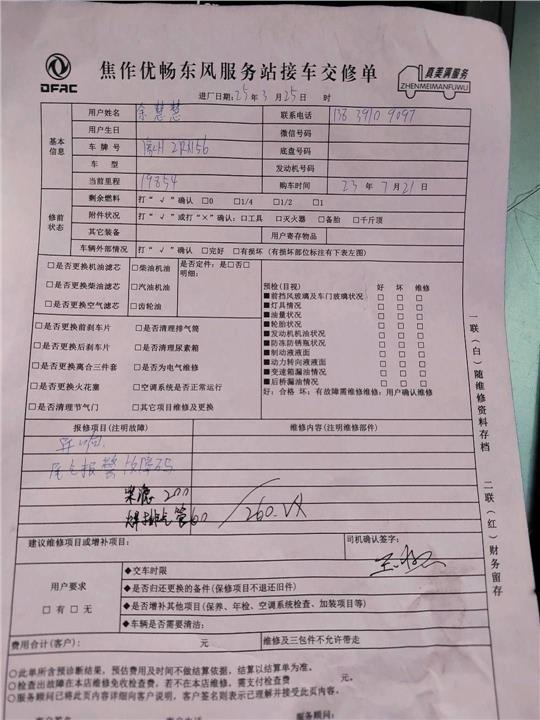 DFAC
焦作优畅东风服务站接车交修单
真美满服务
ZHENMEIMANFUWU
进厂日期:25年3月25日 时
基本信息
用户姓名 余慧慧 联系电话 138 3910 9097
用户生日 微信号码
车牌号 底盘号码
车型 发动机号码
当前里程 19854 购车时间 23年7月21日
修前状态
剩余燃料 打“√”确认 □0 □1/4 □1/2 □1
附件状况 打“√”或打“×”确认:□工具 □灭火器 □备胎 □千斤顶
其它装备 用户寄存物品
车辆外部情况 打“√”确认 □完好 □有损坏(有损坏部位标注有下表左图)
□是否更换机油滤芯 □柴油机油 是否定件:是□否□
明细:
□是否更换柴油滤芯 □汽油机油
□是否更换空气滤芯 □齿轮油
预检(目视) 好 坏 维修
■前挡风玻璃及车门玻璃状况 □ □ □
■灯具情况 □ □ □
■油量状况 □ □ □
■轮胎状况 □ □ □
■发动机机油状况 □ □ □
■防冻防锈瓶状况 □ □ □
■制动液液面 □ □ □
■动力转向液液面 □ □ □
■变速箱漏油情况 □ □ □
■后桥漏油情况 □ □ □
好:合格 坏:有故障需维修维修:用户确认维修
□是否更换前刹车片 □是否清理排气筒
□是否更换后刹车片 □是否清理尿素箱
□是否更换离合三件套 □是否为电气维修
□是否更换火花塞 □空调系统是否正常运行
□是否清理节气门 □其它项目维修及更换
报修项目(注明故障) 维修内容(注明维修部件)
异响
尾气报警故障码
柴滤 200
焊排气管60 260
建议维修项目或增补项目: 司机确认签字:
用户要求
□有□无
◆交车时限
◆是否归还更换的备件(保修项目不退还旧件)
◆是否增补其他项目(保养、年检、空调系统检查、加装项目等)
◆车辆是否需要清洁:
费用合计(客户): 元 维修及三包件不允许带走
○此单所含预诊断结果,预估费用及时间不做结算依据,结算以结算单为准。
○检查出故障在本店维修免收检查费。若不在本店维修、需支付检查费 元。
○服务顾问已将此页内容详细向客户说明,客户签名则表示已理解并接受此页内容。
服务顾问:
一联(白)随维修资料存档
二联(红)财务留存